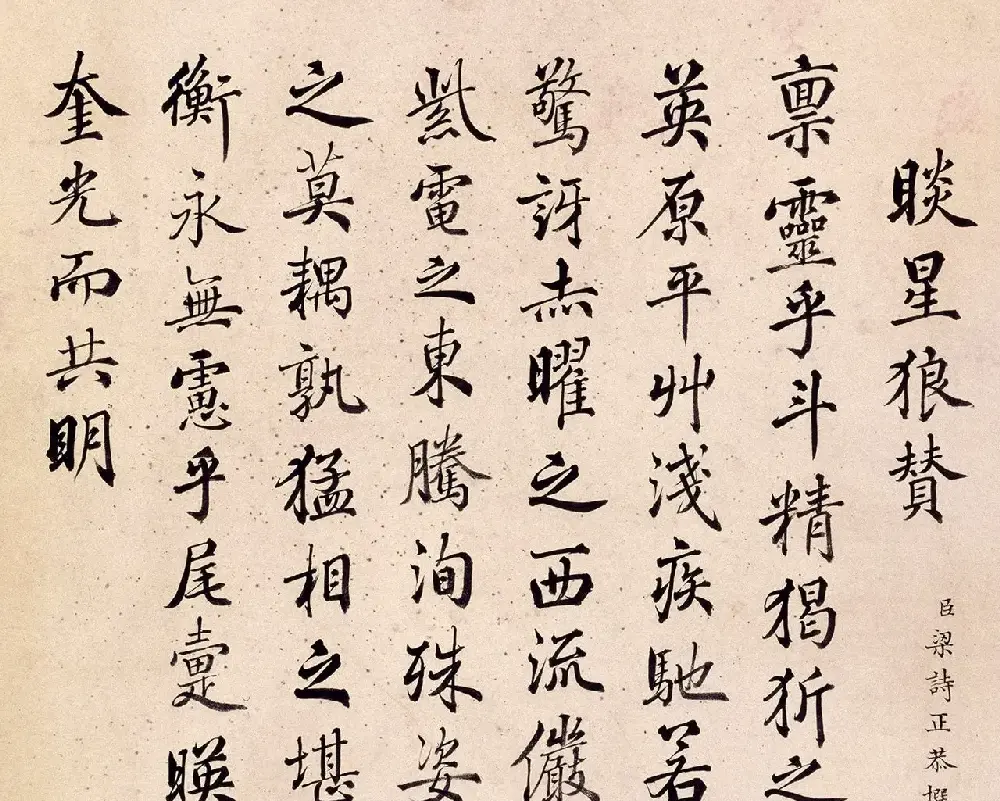 睒星狼赞
臣梁詩正恭撰
禀靈乎斗精猲狾之
英原平艸淺疾馳若
驚訝赤曜之西流儼
紫電之東騰洵殊姿
之莫耦孰猛相之堪
衡永無慮乎尾疐暎
奎光而共明